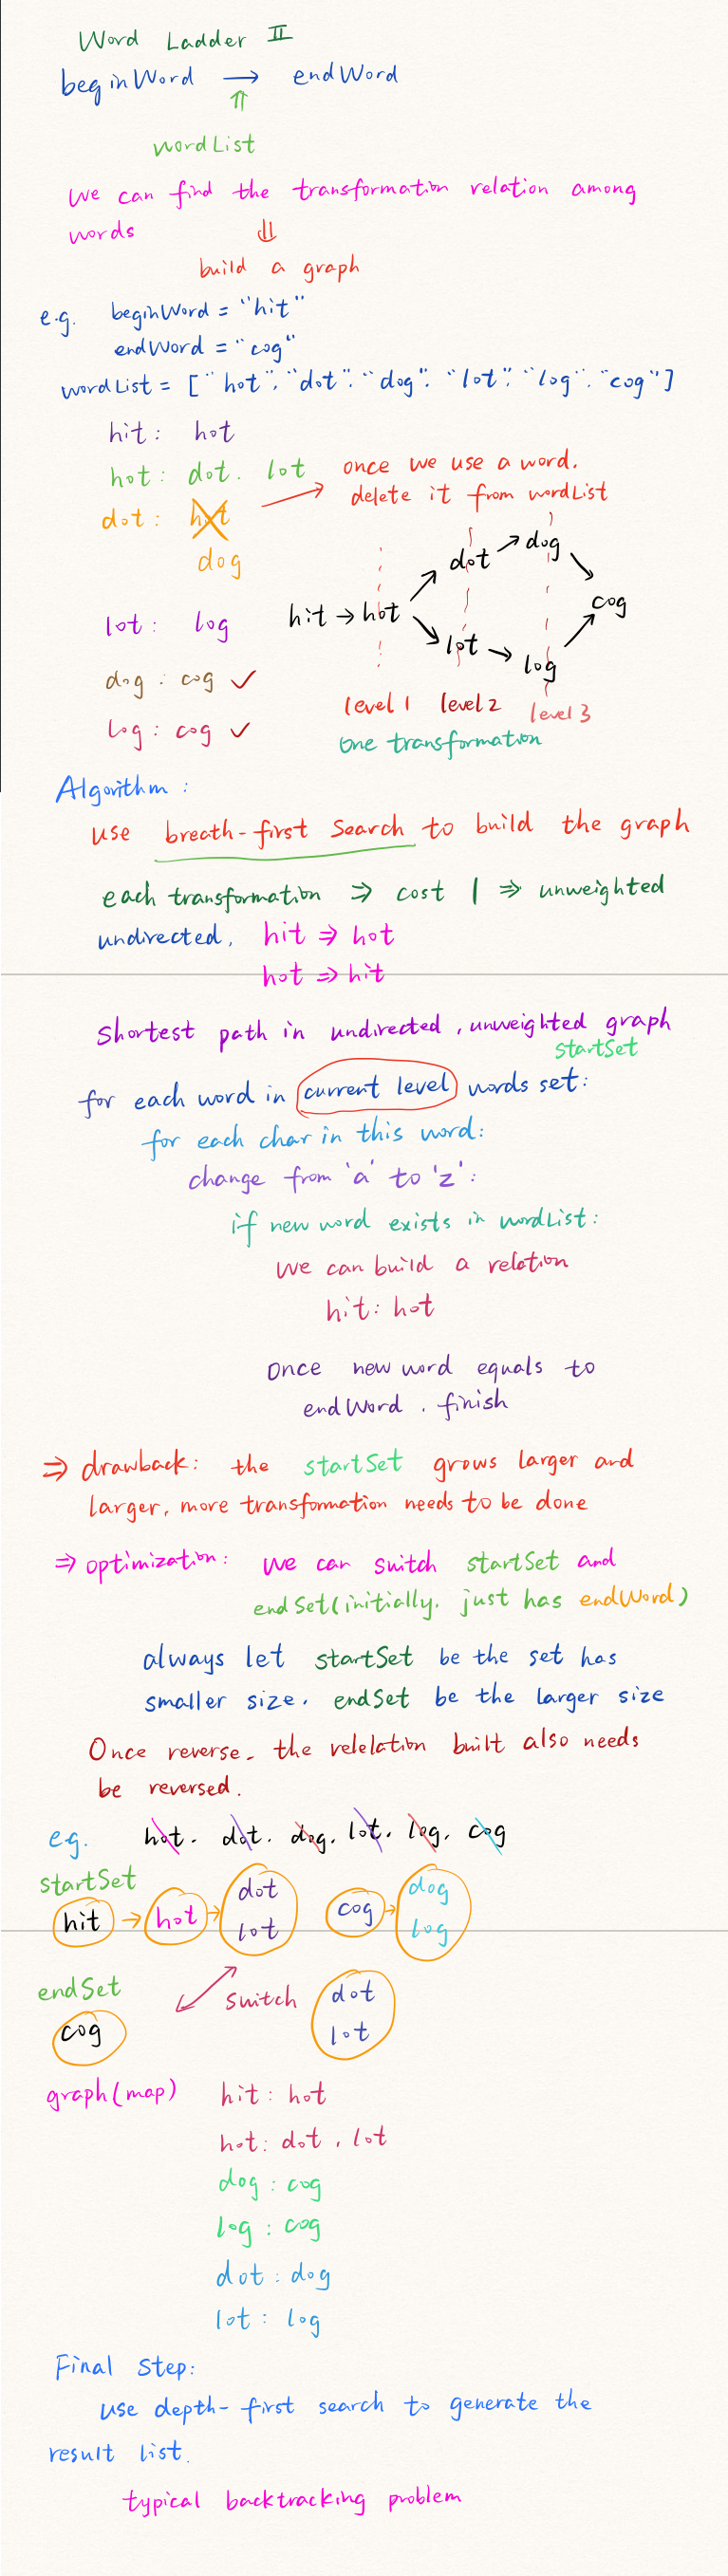 Word Ladder II
beginWord → endWord
⇑
wordList
We can find the transformation relation among
words ⇓
build a graph
e.g. beginWord = "hit"
endWord = "cog"
wordList = ["hot", "dot", "dog", "lot", "log", "cog"]
hit: hot
hot: dot. lot
once we use a word.
delete it from wordList
dot: hot
dog
lot: log
dog: cog ✓
log: cog ✓
hit → hot
dot → dog
lot → log
cog
level 1 level 2 level 3
one transformation
Algorithm:
use breath-first Search to build the graph
each transformation ⇒ cost 1 ⇒ unweighted
undirected. hit ⇒ hot
hot ⇒ hit
Shortest path in undirected, unweighted graph
startSet
for each word in current level words set:
for each char in this word:
change from 'a' to 'z':
if new word exists in wordList:
we can build a relation
hit: hot
Once new word equals to
endWord. finish
⇒ drawback: the startSet grows larger and
larger, more transformation needs to be done
⇒ optimization: we can switch startSet and
endSet(initially. just has endWord)
always let startSet be the set has
smaller size. endSet be the larger size
Once reverse. the relelation built also needs
be reversed.
eg. hot. dot. dog. lot. log. cog
startSet
hit → hot → dot
lot
cog → dog
log
endSet
cog
switch
dot
lot
graph(map) hit: hot
hot: dot, lot
dog: cog
log: cog
dot: dog
lot: log
Final Step:
use depth-first search to generate the
result list.
typical backtracking problem